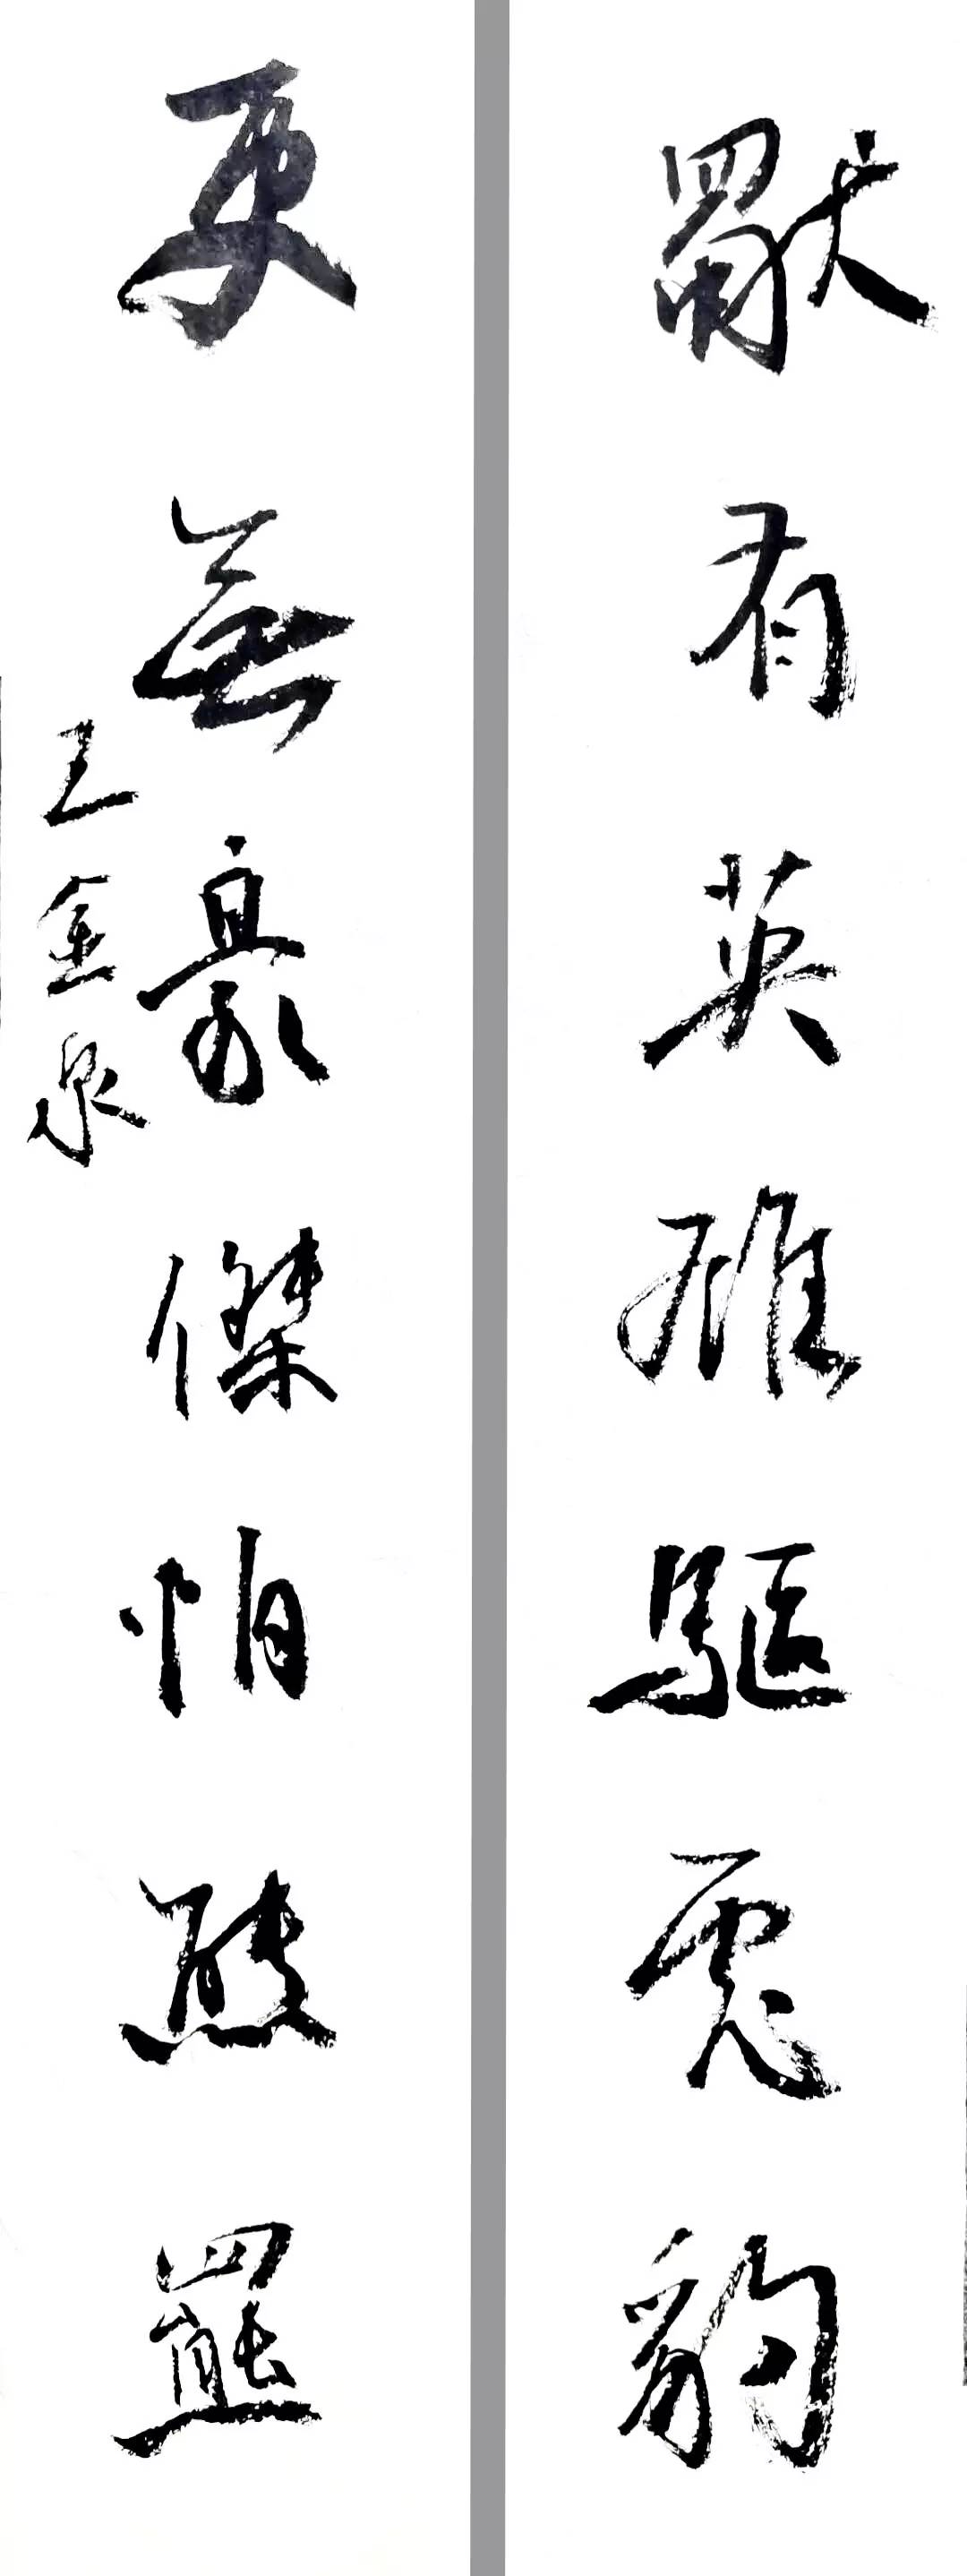 獨有英雄驅虎豹
更無豪傑怕熊羆
王金泉